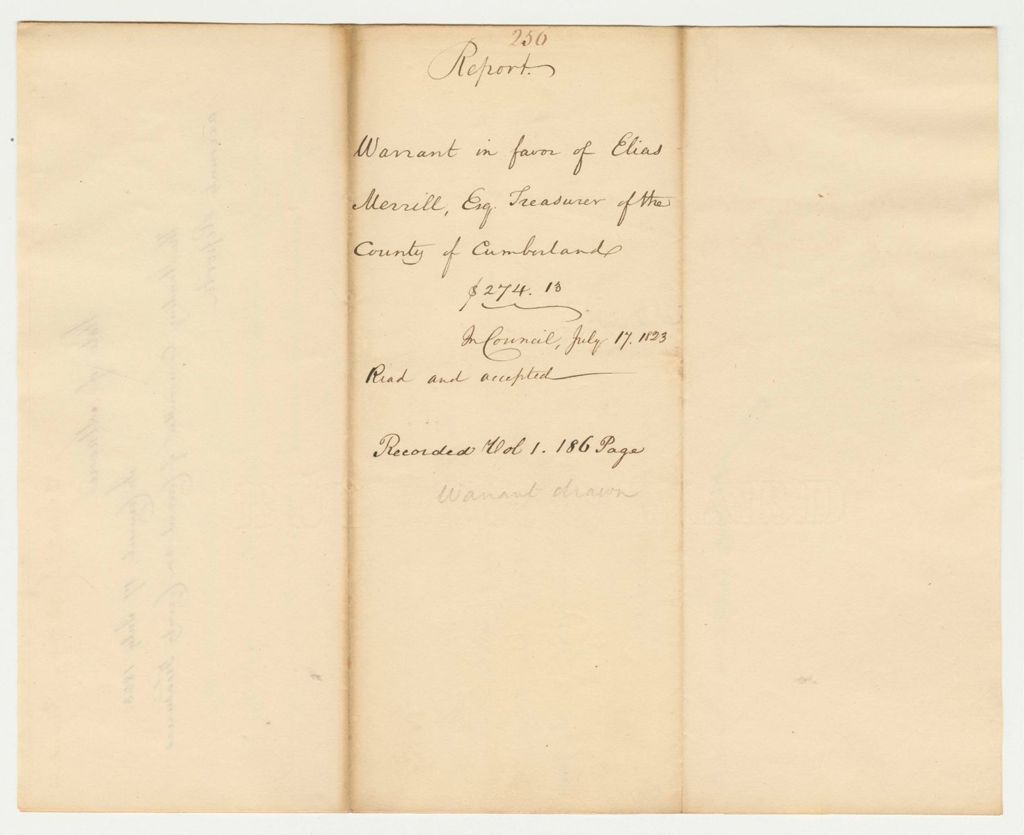 256
Report.
Warrant in favor of Elias
Merrill, Esq. Treasurer of the
County of Cumberland
$274.13
In Council, July 17. 1823
Read and accepted
Recorded Vol 1. 186 Page
Warrant drawn